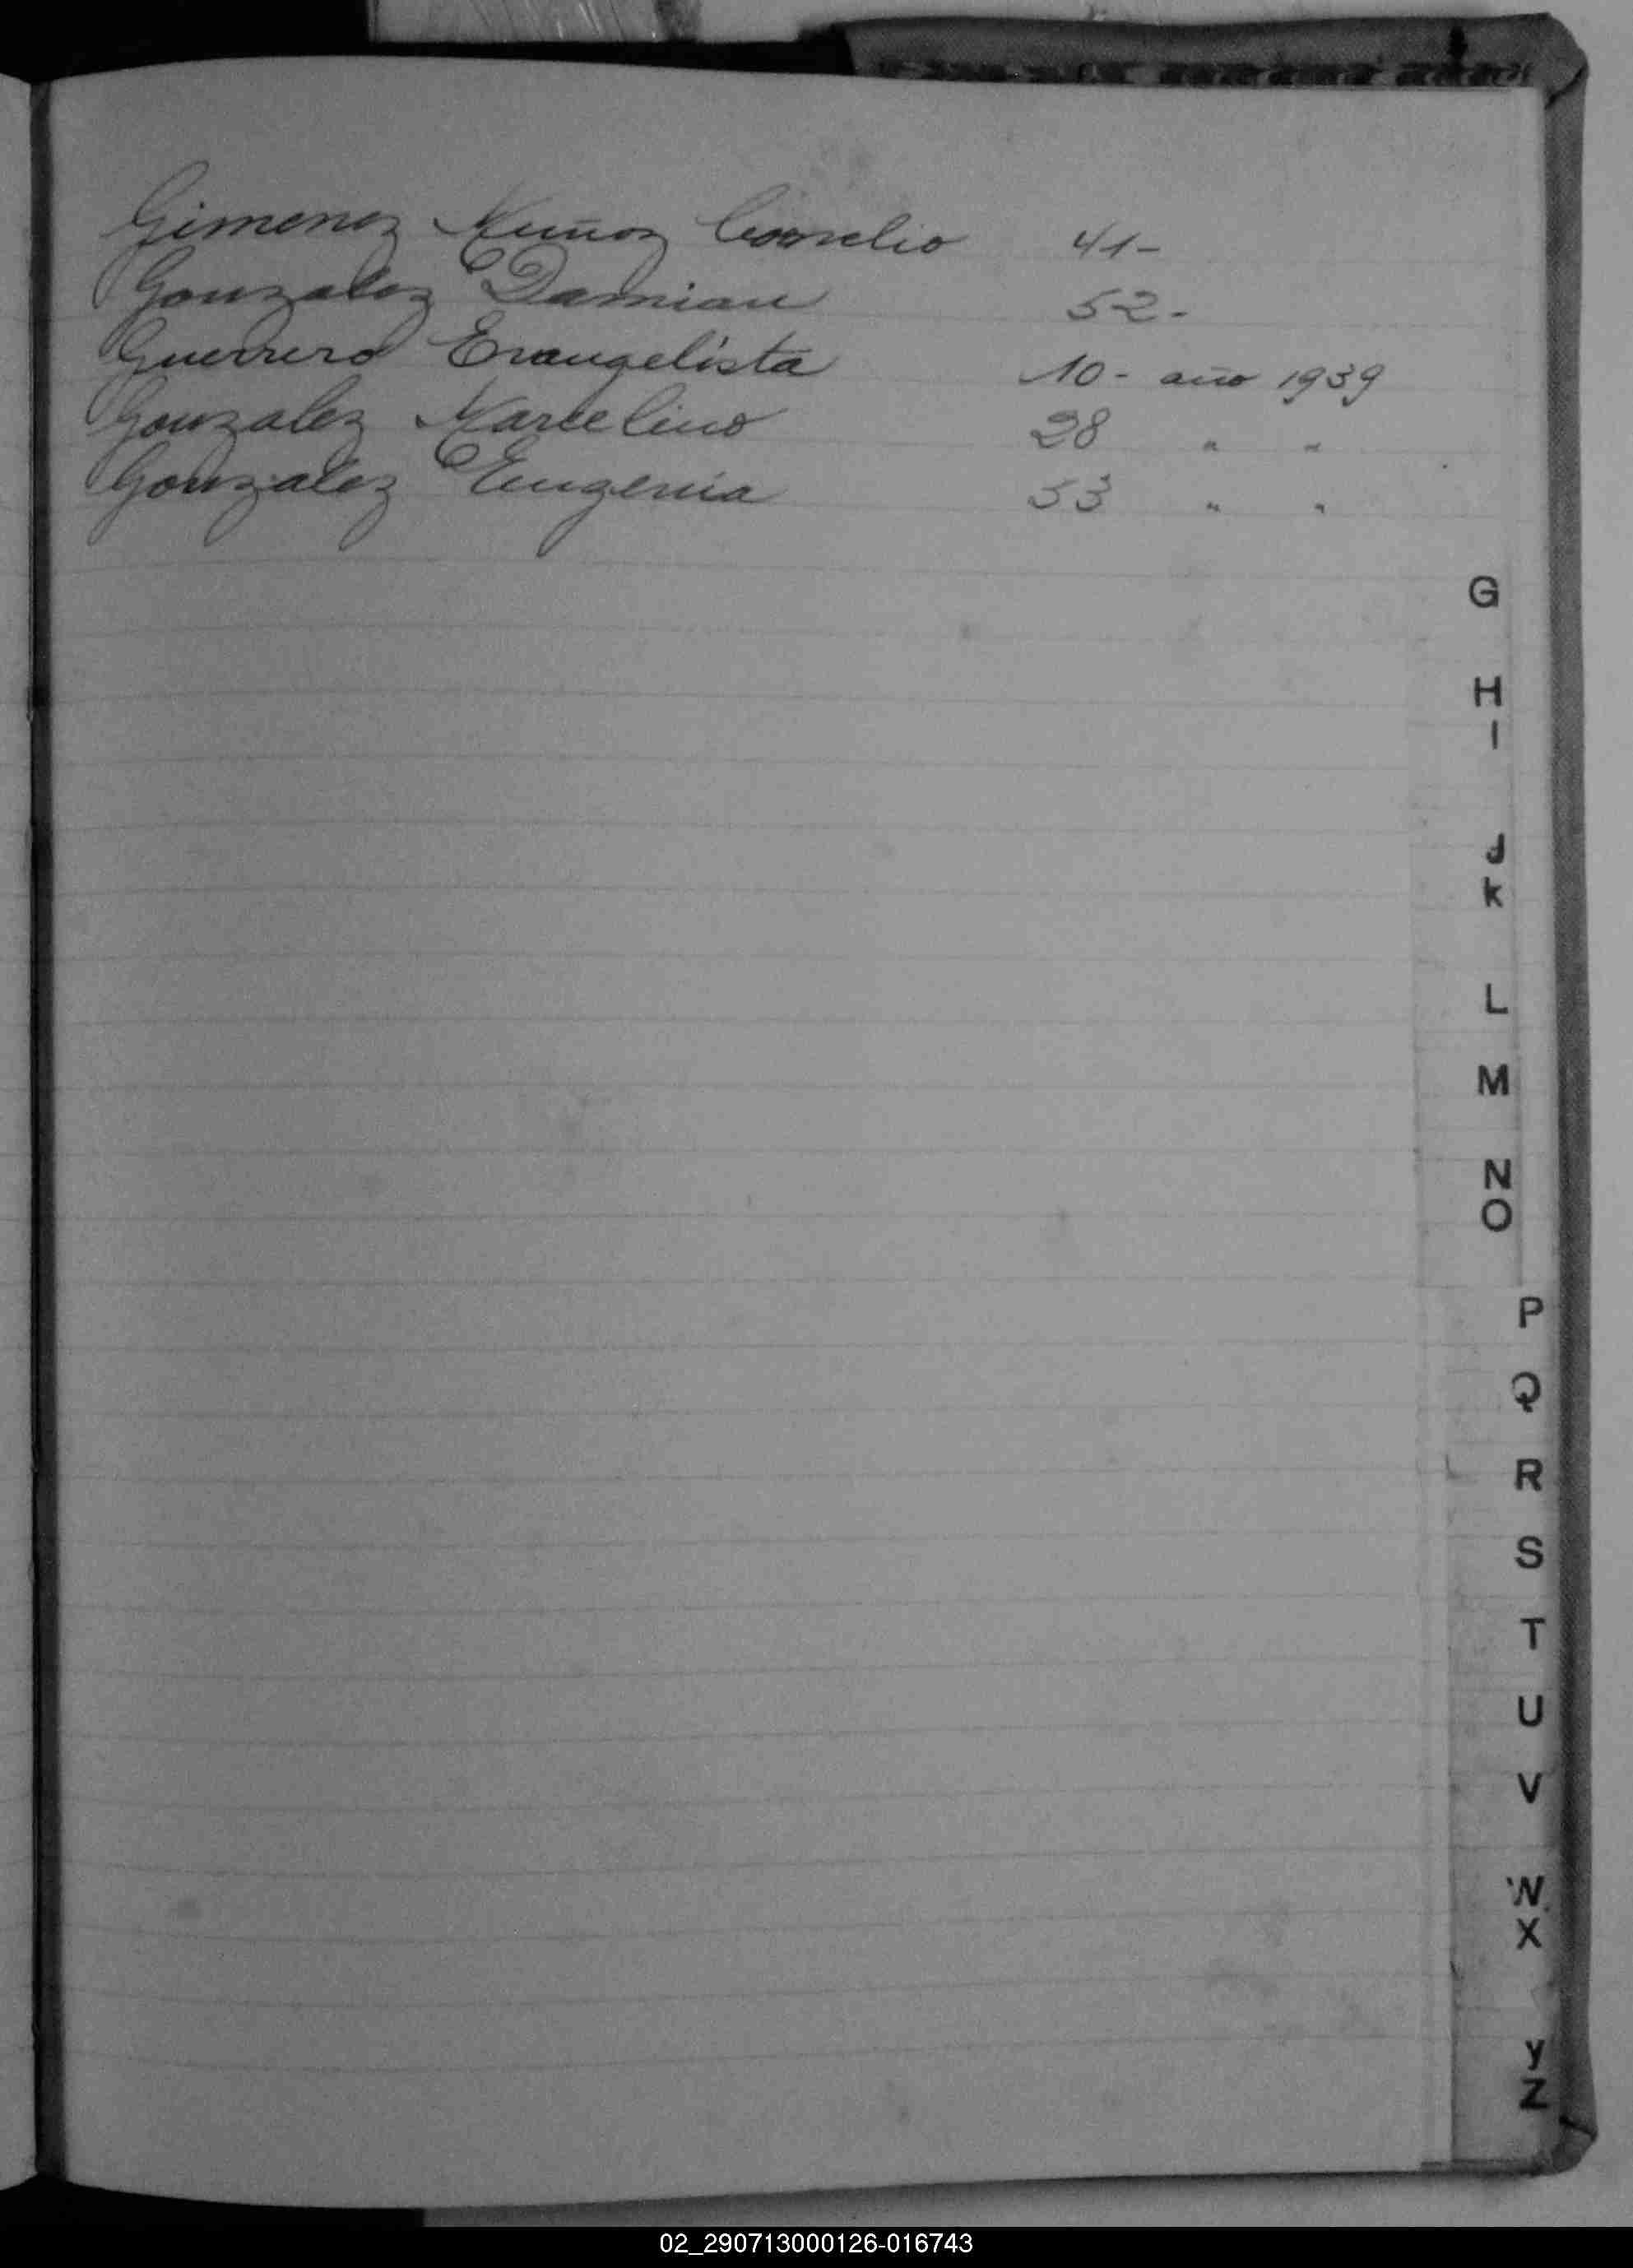 Gimenez Muñoz Cornelio 41-
Gonzalez Damian 52-
Guerrero Evangelista 10- año 1939
Gonzalez Marcelino 28 " "
Gonzalez Eugenia 53 " "
G
H
I
J
K
L
M
N
O
P
Q
R
S
T
U
V
W
X
Y
Z
02_290713000126-016743